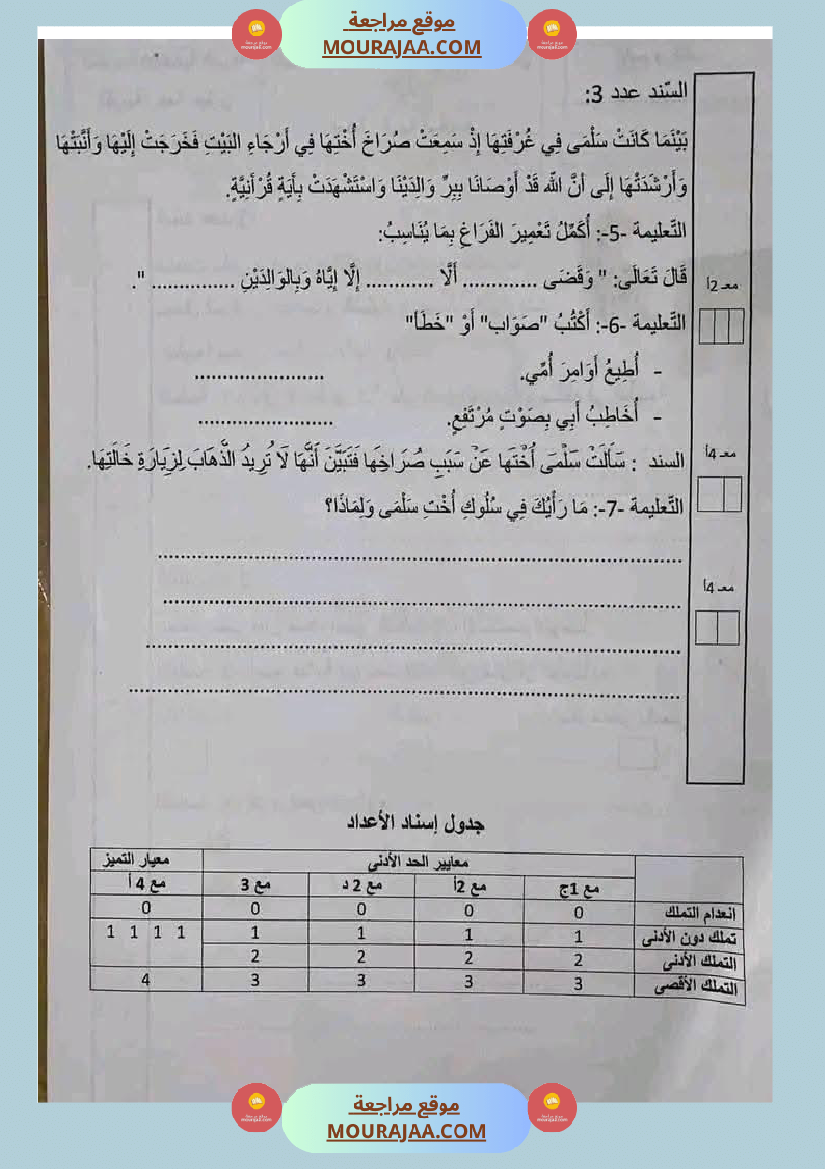 موقع مراجعة
MOURAJAA.COM
السّند عدد 3:
بَيْنَمَا كَانَتْ سَلْمَى فِي غُرْفَتِهَا إِذْ سَمِعَتْ صُرَاخَ أُخْتِهَا فِي أَرْجَاءِ البَيْتِ فَخَرَجَتْ إِلَيْهَا وَأَنَّبَتْهَا
وَأَرْشَدَتْهَا إِلَى أَنَّ اللّه قَدْ أَوْصَانَا بِبِرِّ وَالِدَيْنَا وَاسْتَشْهَدَتْ بِأَيَةٍ قُرْآنِيَّةٍ.
التّعليمة -5-: أُكَمِّلُ تَعْمِيرَ الفَرَاغِ بِمَا يُنَاسِبُ:
قَالَ تَعَالَى: " وَقَضَى ............. أَلَّا ............ إِلَّا إِيَّاهُ وَبِالوَالِدَيْنِ ............... ".
مع 2أ
التّعليمة -6-: أَكْتُبُ "صَوَاب" أَوْ "خَطَأ"
- أُطِيعُ أَوَامِرَ أُمِّي. .......................
- أُخَاطِبُ أَبِي بِصَوْتٍ مُرْتَفِعٍ. ........................
مع 4أ
السند : سَأَلَتْ سَلْمَى أُخْتَهَا عَنْ سَبَبِ صُرَاخِهَا فَتَبَيَّنَ أَنَّهَا لَا تُرِيدُ الذَّهَابَ لِزِيَارَةِ خَالَتِهَا.
التّعليمة -7-: مَا رَأْيُكَ فِي سُلُوكِ أُخْتِ سَلْمَى وَلِمَاذَا؟
مع 4أ
جدول إسناد الأعداد
معايير الحد الأدنى معيار التميز
مع 1ج مع 2أ مع 2 د مع 3 مع 4 أ
انعدام التملك 0 0 0 0 0
تملك دون الأدنى 1 1 1 1 1 1 1 1
التملك الأدنى 2 2 2 2
التملك الأقصى 3 3 3 3 4
موقع مراجعة
MOURAJAA.COM